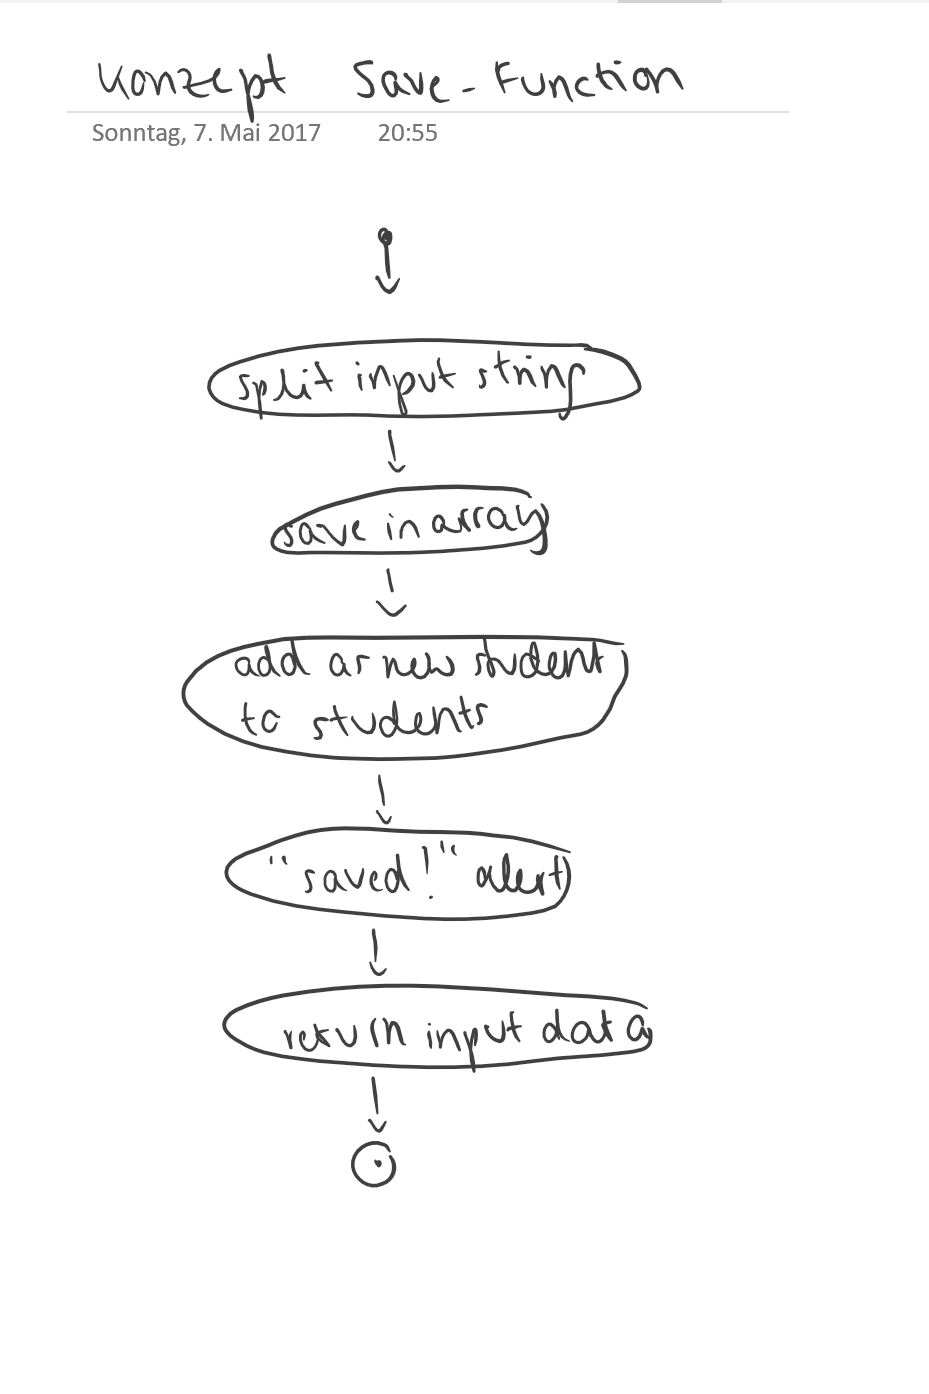 Konzept Save-Function
Sonntag, 7. Mai 2017 20:55
split input string
save in array
add as new student
to students
"saved!" alert
return input data